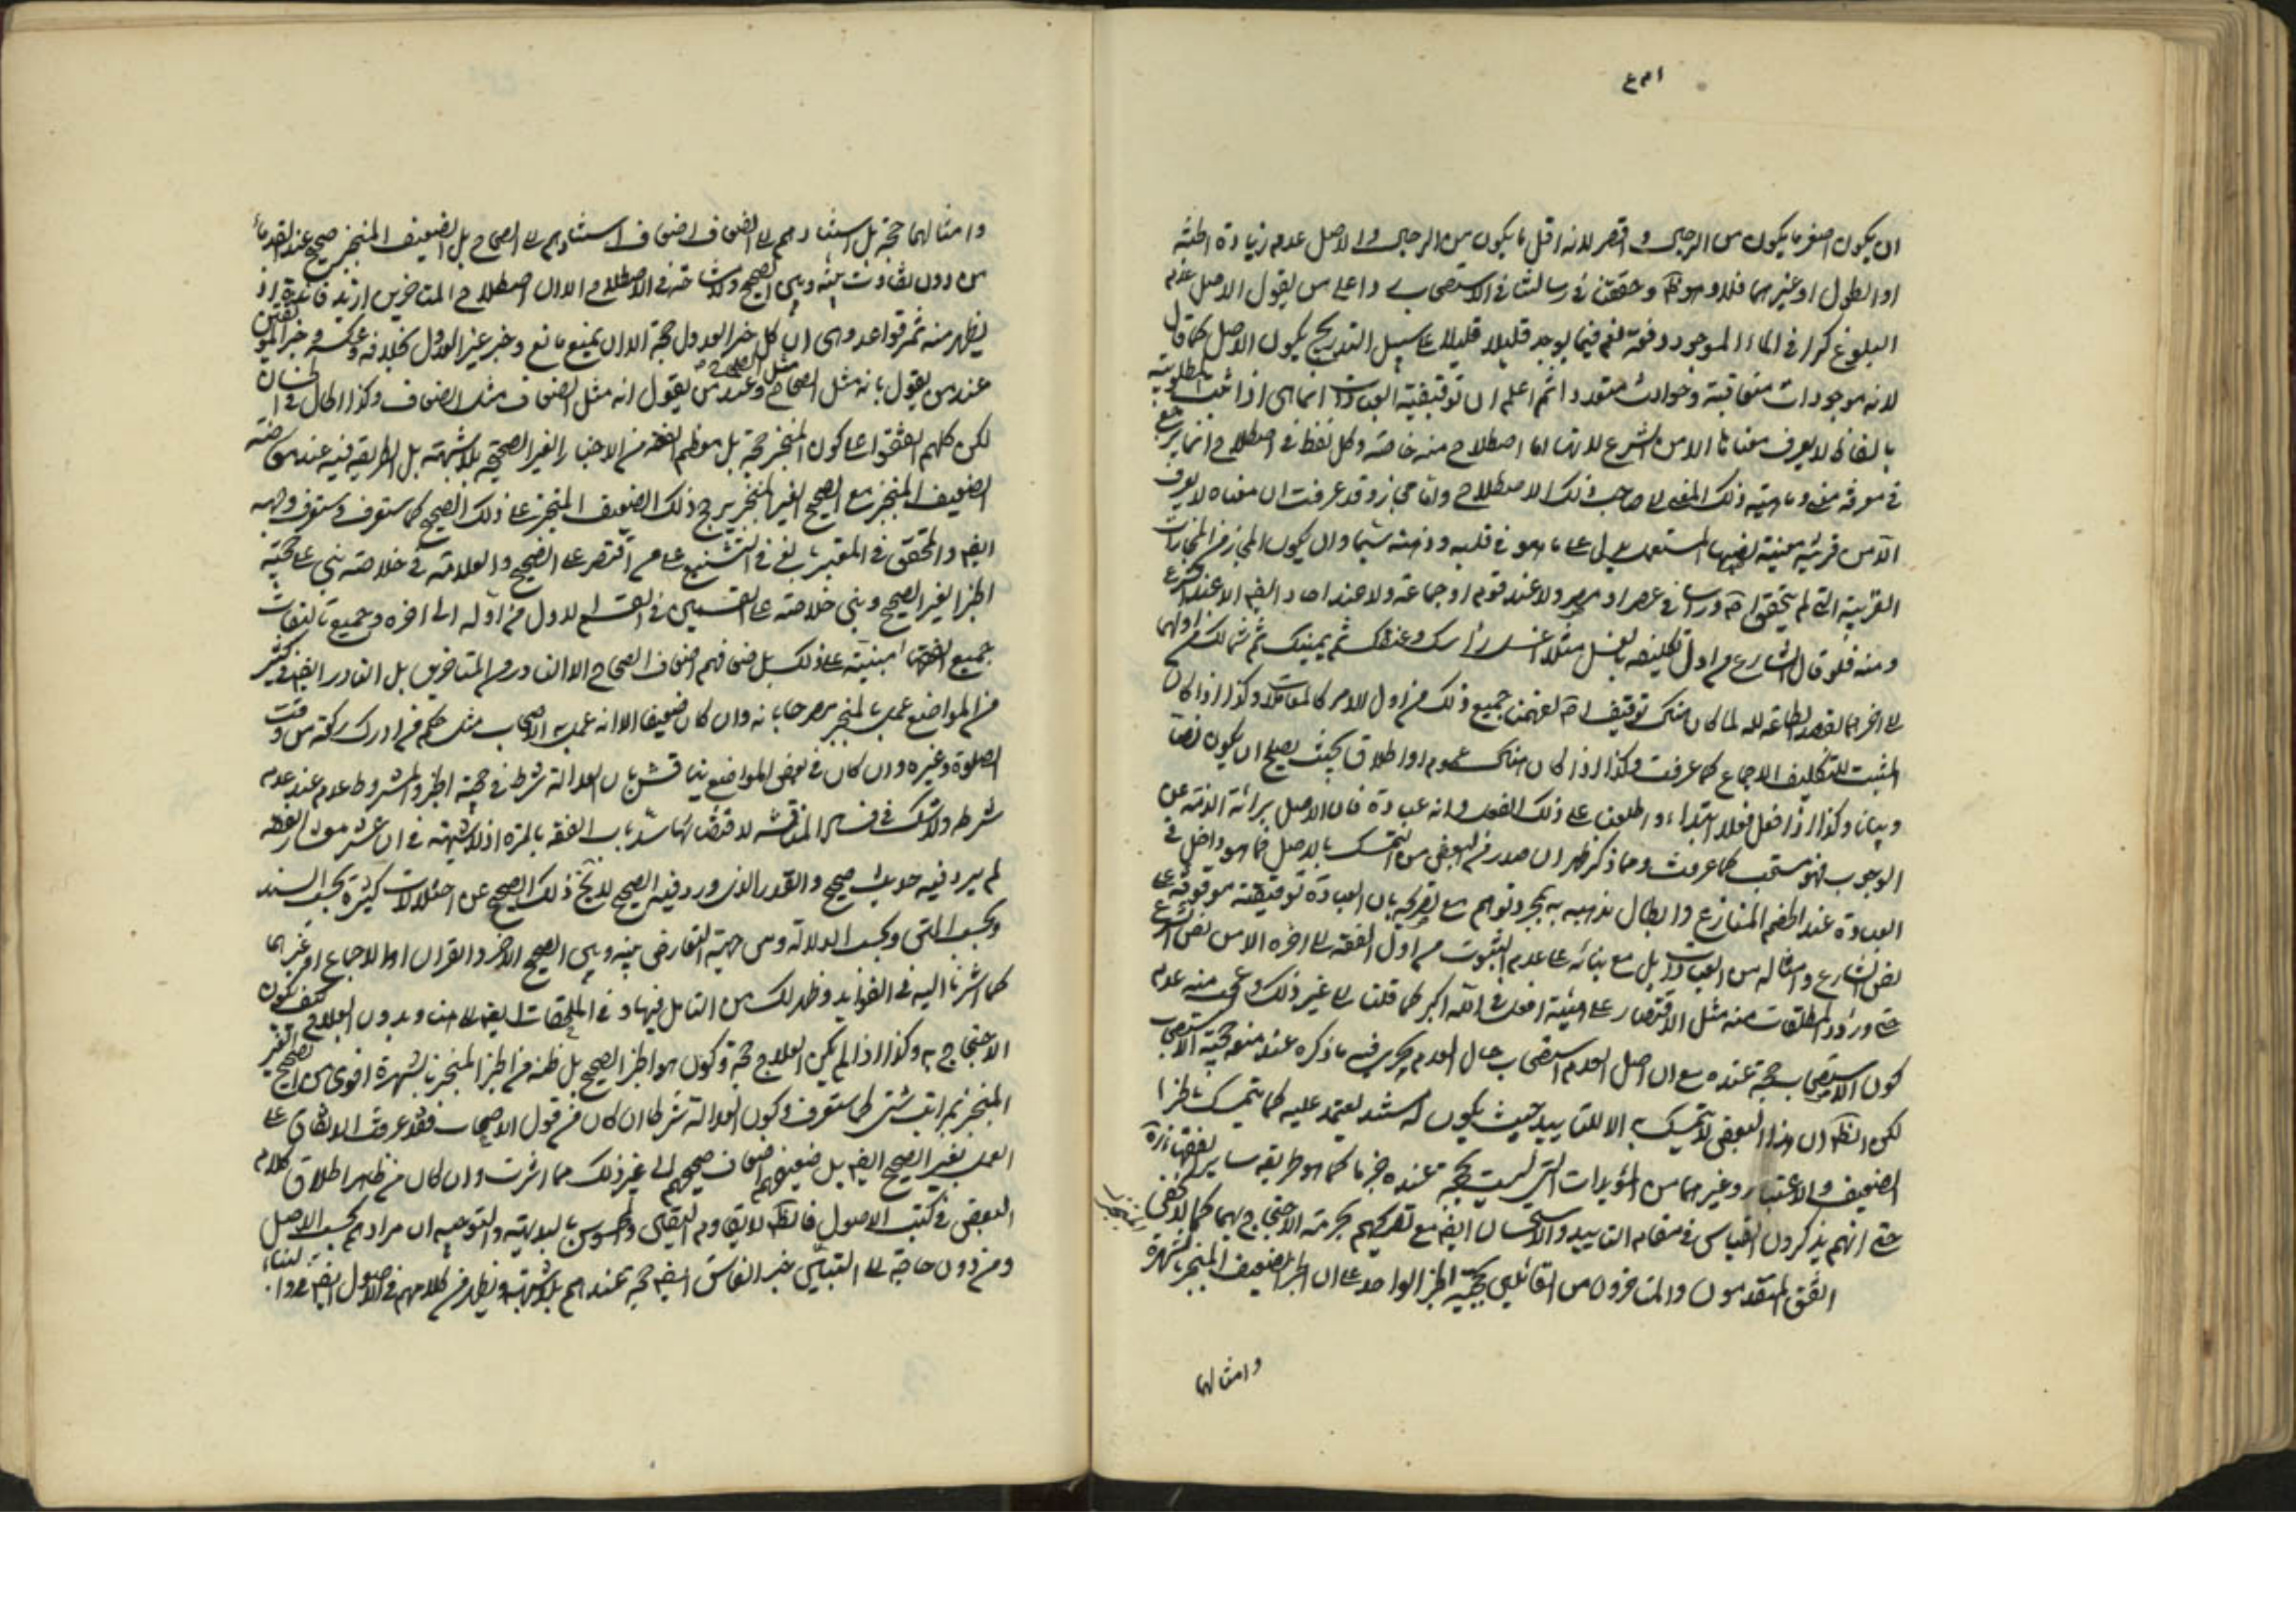 ان يكون اصغر ما يكون من الرجلين واقصر لانه اقل ما يكون من الرجلين والاصل عدم زيادة
او الطول او غيرهما فلا وهو ظ وحققنا في رسالتنا في الاستصحاب واعلم من يقول الاصل عدم
البلوغ كرا في الماء الموجود دفعة نعم فيما يوجد قليلا قليلا على سبيل التدريج يكون الاصل كما قال
لانه موجودات متعاقبة وحوادث متعددة ثم اعلم ان توقيفية العبادات انما هي اذا ثبت المطلوبية
بالفاظ لا يعرف معناها الا من الشرع لانها اما اصطلاح منه خاصة وكل لفظ في اصطلاح انما يرجع
في معرفة معنى وماهية ذلك المعنى الى صاحب ذلك الاصطلاح واما مجاز وقد عرفت ان معناه لا يعرف
الا من قرينة معينة نصبها المستعمل على ما هو في قلبه وذهنه سيما وان يكون المجاز من المجازات
الغريبة التي لم يتحقق اصلا وراسا في عصر او مصر ولا عند قوم او جماعة ولا عند احاد ايضا الا عند الشرع
ومنه فلو قال الشارع من اول تكليفه بالغسل مثلا اغسل رأسك وعنقك ثم يمينك ثم شمالك من اولهما
الى اخرهما بقصد الطاعة لله لما كان هناك توقيف اصلا لفهمنا جميع ذلك من اول الامر كالمعاملات وكذا اذا كان
المثبت للتكليف الاجماع كما عرفت وكذا اذا كان هناك عموم او اطلاق بحيث يصلح ان يكون نصا
وبيانا وكذا اذا فعل فعلا ابتداء واطلعنا على ذلك الفعل وانه عبادة فان الاصل برائة الذمة عن
الوجوب فهو مستحب كما عرفت ومما ذكر ظهر ان ما صدر من البعض من التمسك بالاصل فيما هو داخل في
العبادة عند الخصم المنازع وابطال مذهبه به بمجرد توهم مع تصريحه بان العبادة توقيفية موقوفة على
نص الشارع وامثاله من العبادات بل مع بنائه على عدم الثبوت من اول الفقه الى اخره الا من نص الشارع
حتى ورد المطلقات منه مثل الاقتصار على هيئة افعل في الله اكبر كما قلنا الى غير ذلك وعرفت منه عدم
كون الاستصحاب حجة عنده مع ان اصل العدم استصحاب حال العدم يجري فيه ما ذكره عند منعه حجية الاستصحاب
لكن الظ ان هذا البعض لا يتمسك الا للتاييد حيث يكون له مستند يعتمد عليه كما يتمسك بالخبر
الضعيف والاعتبار وغيرهما من المؤيدات التي ليست بحجة عنده جزما كما هو طريقة ساير الفقهاء
حتى انهم يذكرون القياس في مقام التاييد والاستحسان ايضا مع تصريحهم بحرمة الاحتجاج بهما كما لا يخفى
اتفق المتقدمون والمتاخرون من القائلين بحجية الخبر الواحد على ان الخبر الضعيف المنجبر بالشهرة
وامثالها
وامثالها حجة بل استنادهم الى الضعاف اضعاف استنادهم الى الصحاح بل الضعيف المنجبر صحيح عند القدماء
من دون تفاوت بينه وبين الصحيح ولا مشاحة في الاصطلاح الا ان اصطلاح المتاخرين ازيد فائدة اذ
يظهر منه ثمر قواعد وهي ان كل خبر العدول حجة الا ان يمنع مانع وخبر غير العدول بخلافه وعكسه وخبر الموثقين
عند من يقول بانه مثل الصحاح مثل الصحيح وعند من يقول انه مثل الضعاف مثل الضعاف وكذا الحال في الحسان
لكن كلهم اتفقوا على كون المنجبر حجة بل معظم الفقه من الاخبار الغير الصحيحة بلا شبهة بل الطريقة فيه عند معارضة
الضعيف المنجبر مع الصحيح الغير المنجبر يرجح ذلك الضعيف المنجبر على ذلك الصحيح كما ستعرف وستعرف وجهه
ايضا والمحقق في المعتبر بالغ في التشنيع على من اقتصر على الصحيح والعلامة في خلاصته بنى على حجية
الخبر الغير الصحيح وبنى خلاصته على القسمين في القسم الاول من اوله الى اخره وجميع تاليفات
جميع الفقهاء مبنية على ذلك بل ضعافهم اضعاف الصحاح الا النادر من المتاخرين بل النادر ايضا في كثير
من المواضع عمل بالمنجبر مصرحا بانه وان كان ضعيفا الا انه عمل به الاصحاب مثل حكم من ادرك ركعة من وقت
الصلوة وغيره وان كان في بعض المواضع يناقش بان العدالة شرط في حجية الخبر والمشروط عدم عند عدم
شرطه ولا شك في فساد المناقشة لاقتضائها سد باب الفقه بالمرة اذ لا شبهة في ان عشر معشار الفقه
لم يرد فيه حديث صحيح والقدر الذي ورد فيه الصحيح لا يخ ذلك الصحيح عن اختلالات كثيرة بحسب السند
وبحسب المتن وبحسب الدلالة ومن جهة التعارض بينه وبين الصحيح الاخر والقران او الاجماع او غيرهما
كما اشرنا اليه في الفوائد وظهر لك من التامل فيها وفي الملحقات ايضا الى هنا وبدون العلاج كيف يكون
الاحتجاج به وكذا اذا لم يكن العلاج حجة وكون هو الخبر الصحيح بل ظنه من الخبر المنجبر بالشهرة اقوى من الصحيح الغير
المنجبر بمراتب شتى كما ستعرف وكون العدالة شرطا ان كان من قول الاصحاب فقد عرفت الاتفاق على
العمل بغير الصحيح ايضا بل ضعيفهم اضعاف صحيحهم الى غير ذلك مما اشرت وان كان من ظاهر اطلاق كلام
البعض في كتب الاصول فالظ لا يقاوم اليقين والمحسوس بالبديهة والتوجيه ان مرادهم بحسب الاصل
ومن دون حاجة الى التبين خبر الفاسق ايضا حجة عندهم بلا شبهة ويظهر من كلامهم في الاصول ايضا